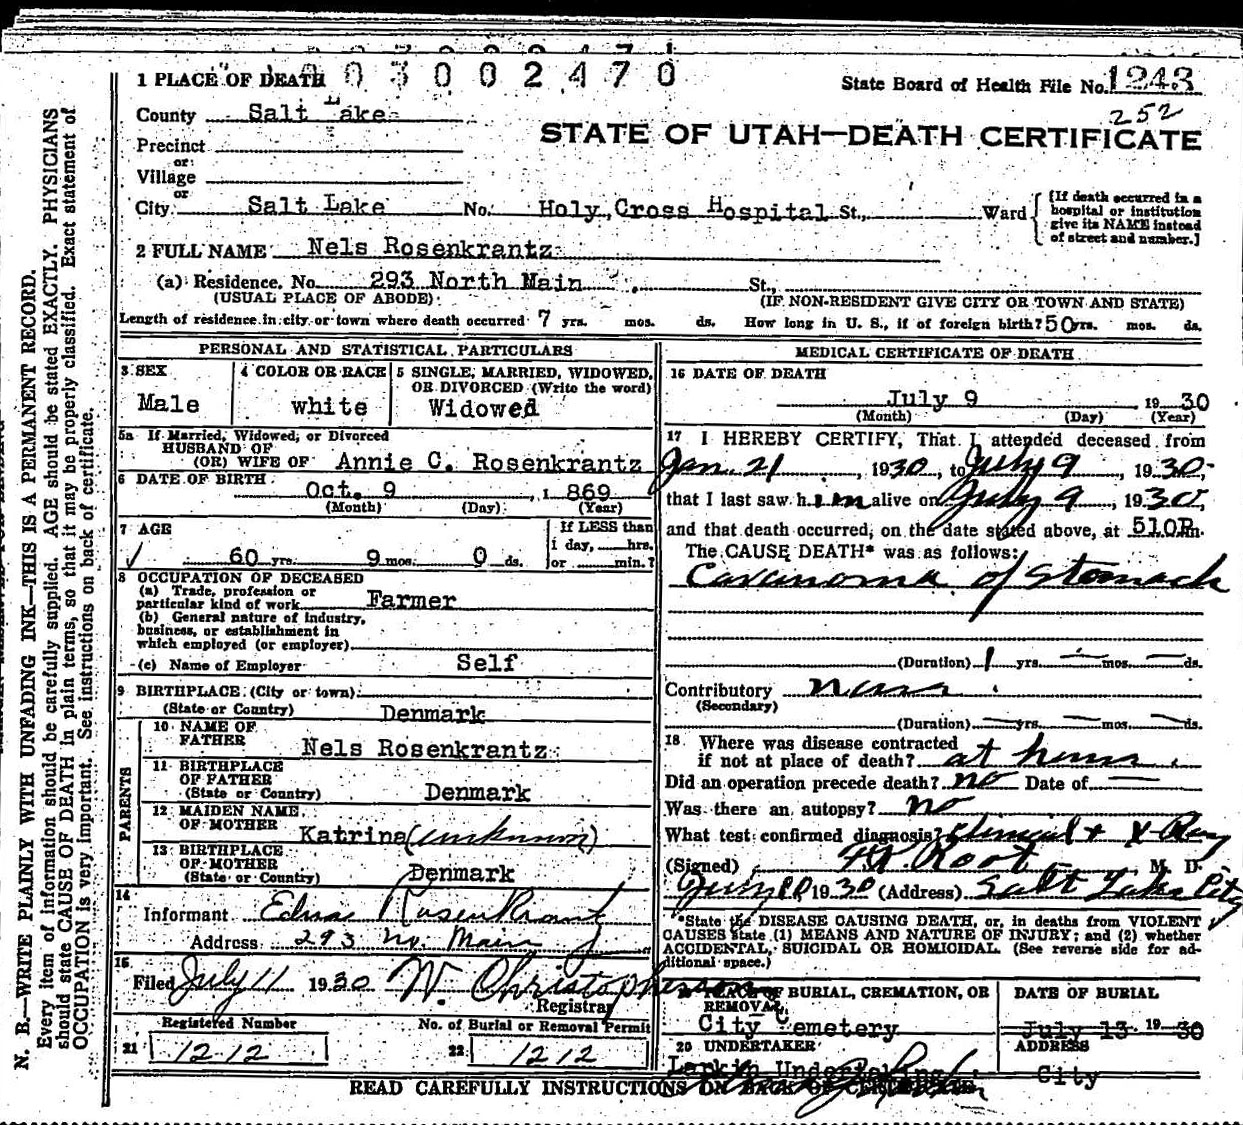 003002470
1 PLACE OF DEATH
State Board of Health File No. 1243
252
County Salt Lake
STATE OF UTAH—DEATH CERTIFICATE
Precinct
or
Village
or
City Salt Lake No. Holy Cross Hospital St., Ward [If death occurred in a hospital or institution give its NAME instead of street and number.]
2 FULL NAME Nels Rosenkrantz
(a) Residence. No. 293 North Main St.,
(USUAL PLACE OF ABODE) (IF NON-RESIDENT GIVE CITY OR TOWN AND STATE)
Length of residence in city or town where death occurred 7 yrs. mos. ds. How long in U. S., if of foreign birth? 50 yrs. mos. ds.
PERSONAL AND STATISTICAL PARTICULARS
3 SEX
Male
4 COLOR OR RACE
white
5 SINGLE, MARRIED, WIDOWED,
OR DIVORCED (Write the word)
Widowed
5a If Married, Widowed, or Divorced
HUSBAND OF
(OR) WIFE OF Annie C. Rosenkrantz
6 DATE OF BIRTH
Oct. 9 , 1 869
(Month) (Day) (Year)
7 AGE
60 yrs. 9 mos. 0 ds.
If LESS than
1 day, hrs.
or min.?
8 OCCUPATION OF DECEASED
(a) Trade, profession or
particular kind of work Farmer
(b) General nature of industry,
business, or establishment in
which employed (or employer)
(c) Name of Employer Self
9 BIRTHPLACE (City or town)
(State or Country) Denmark
PARENTS
10 NAME OF
FATHER Nels Rosenkrantz
11 BIRTHPLACE
OF FATHER
(State or Country) Denmark
12 MAIDEN NAME
OF MOTHER Katrina (unknown)
13 BIRTHPLACE
OF MOTHER
(State or Country) Denmark
14
Informant Edna Rosenkrantz
Address 293 No. Main
15
Filed July 11 1930 W. Christopherson
Registrar
Registered Number
21 1212
No. of Burial or Removal Permit
22 1212
MEDICAL CERTIFICATE OF DEATH
16 DATE OF DEATH
July 9 , 1930
(Month) (Day) (Year)
17 I HEREBY CERTIFY, That I attended deceased from
Jan. 21 , 1930, to July 9 , 1930,
that I last saw him alive on July 9 , 1930,
and that death occurred, on the date stated above, at 510P m.
The CAUSE DEATH* was as follows:
Carcinoma of Stomach
(Duration) 1 yrs. — mos. — ds.
Contributory none
(Secondary)
(Duration) — yrs. — mos. — ds.
18 Where was disease contracted
if not at place of death? at home
Did an operation precede death? no Date of —
Was there an autopsy? no
What test confirmed diagnosis? Clinical + X-Ray
(Signed) F.K. Root M. D.
July 10 1930 (Address) Salt Lake City
*State the DISEASE CAUSING DEATH, or, in deaths from VIOLENT
CAUSES state (1) MEANS AND NATURE OF INJURY; and (2) whether
ACCIDENTAL, SUICIDAL OR HOMICIDAL. (See reverse side for ad-
ditional space.)
19 PLACE OF BURIAL, CREMATION, OR
REMOVAL
City Cemetery
DATE OF BURIAL
July 13 1930
20 UNDERTAKER
Larkin Undertaking
ADDRESS
City
READ CAREFULLY INSTRUCTIONS ON BACK OF CERTIFICATE
N. B.—WRITE PLAINLY WITH UNFADING INK—THIS IS A PERMANENT RECORD.
Every item of information should be carefully supplied. AGE should be stated EXACTLY. PHYSICIANS
should state CAUSE OF DEATH in plain terms, so that it may be properly classified. Exact statement of
OCCUPATION is very important. See instructions on back of certificate.